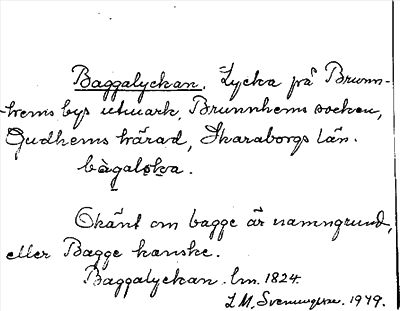 Baggalyckan. Lycka på Brunn-
hems bys utmark, Brunnhems socken,
Gudhems härad, Skaraborgs län.
Okänt om bagge är namngrund,
eller Bagge kanske.
Baggalyckan. lm. 1824.
1949.